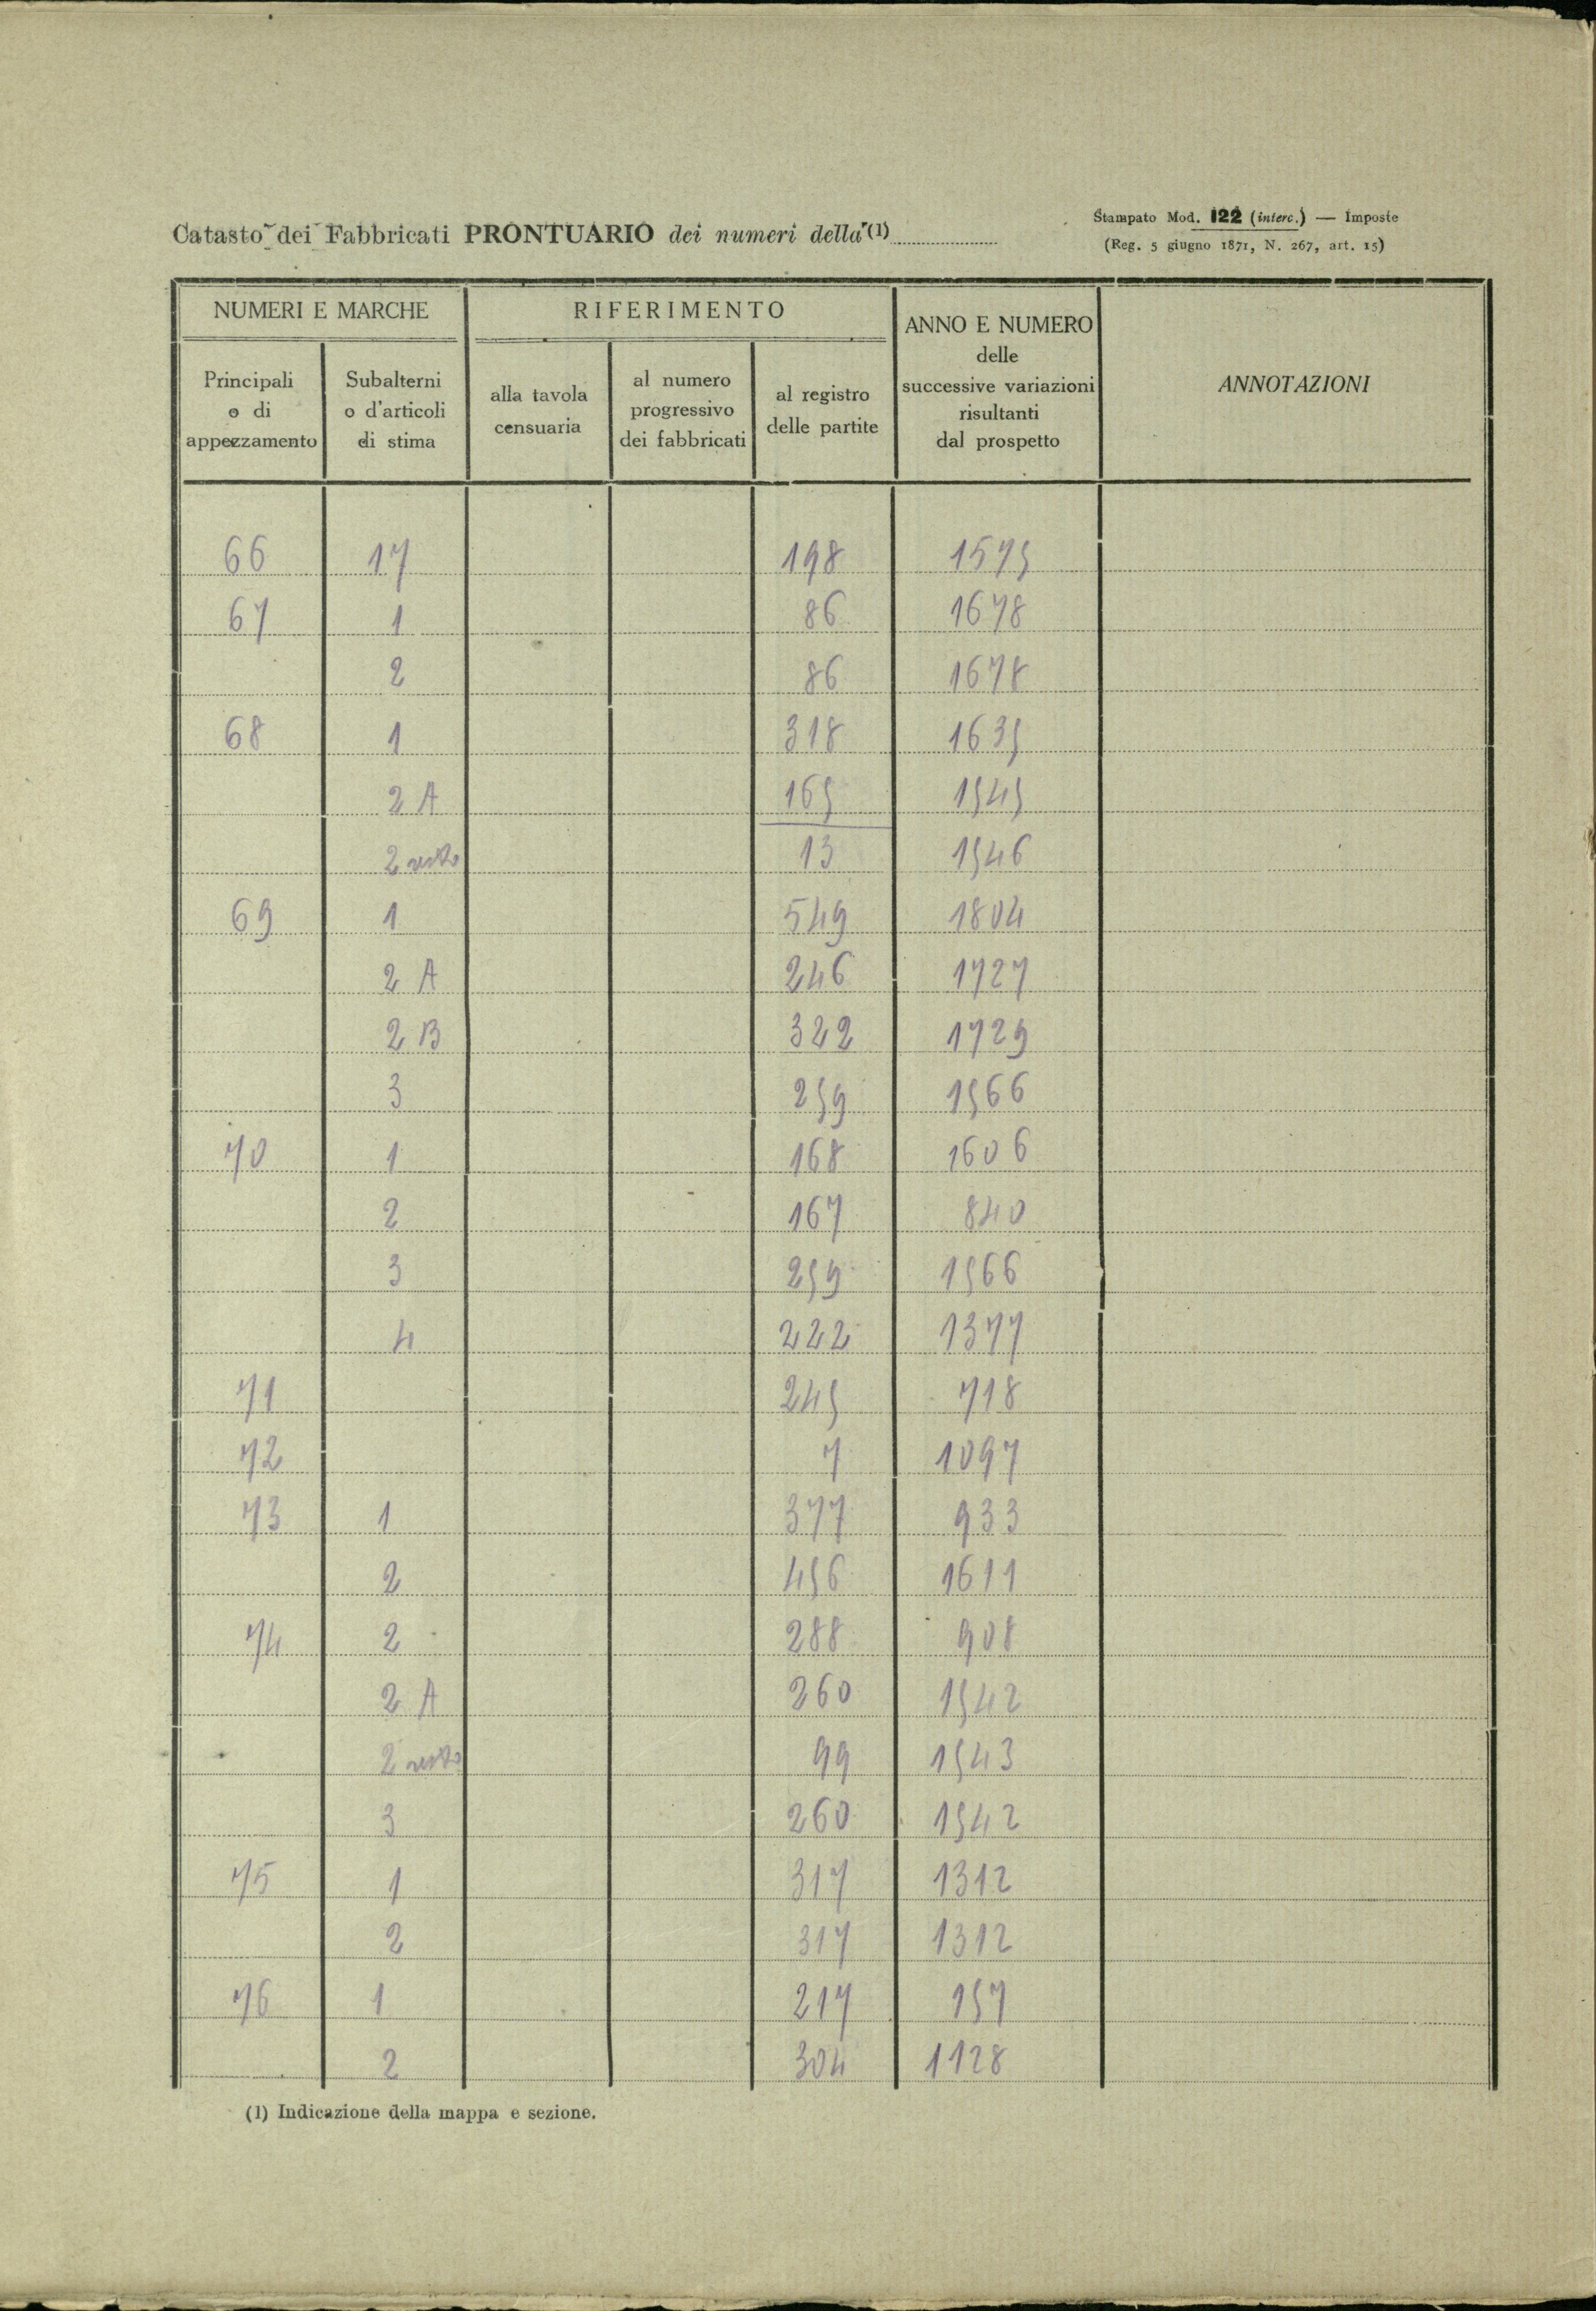 Catasto dei Fabbricati PRONTUARIO dei numeri della (1)
Stampato Mod. 122 (interc.) — Imposte
(Reg. 5 giugno 1871, N. 267, art. 15)
NUMERI E MARCHE
RIFERIMENTO
ANNO E NUMERO
delle
successive variazioni
risultanti
dal prospetto
ANNOTAZIONI
Principali
o di
appezzamento
Subalterni
o d'articoli
di stima
alla tavola
censuaria
al numero
progressivo
dei fabbricati
al registro
delle partite
66 17 198 1575
67 1 86 1678
2 86 1678
68 1 318 1635
2 A 165 1545
2 resto 13 1546
69 1 549 1804
2 A 246 1727
2 B 322 1729
3 259 1566
70 1 168 1606
2 167 840
3 259 1566
4 222 1377
71 245 718
72 7 1097
73 1 377 933
2 456 1611
74 2 288 908
2 A 260 1542
2 resto 99 1543
3 260 1542
75 1 317 1312
2 317 1312
76 1 217 157
2 304 1128
(1) Indicazione della mappa e sezione.